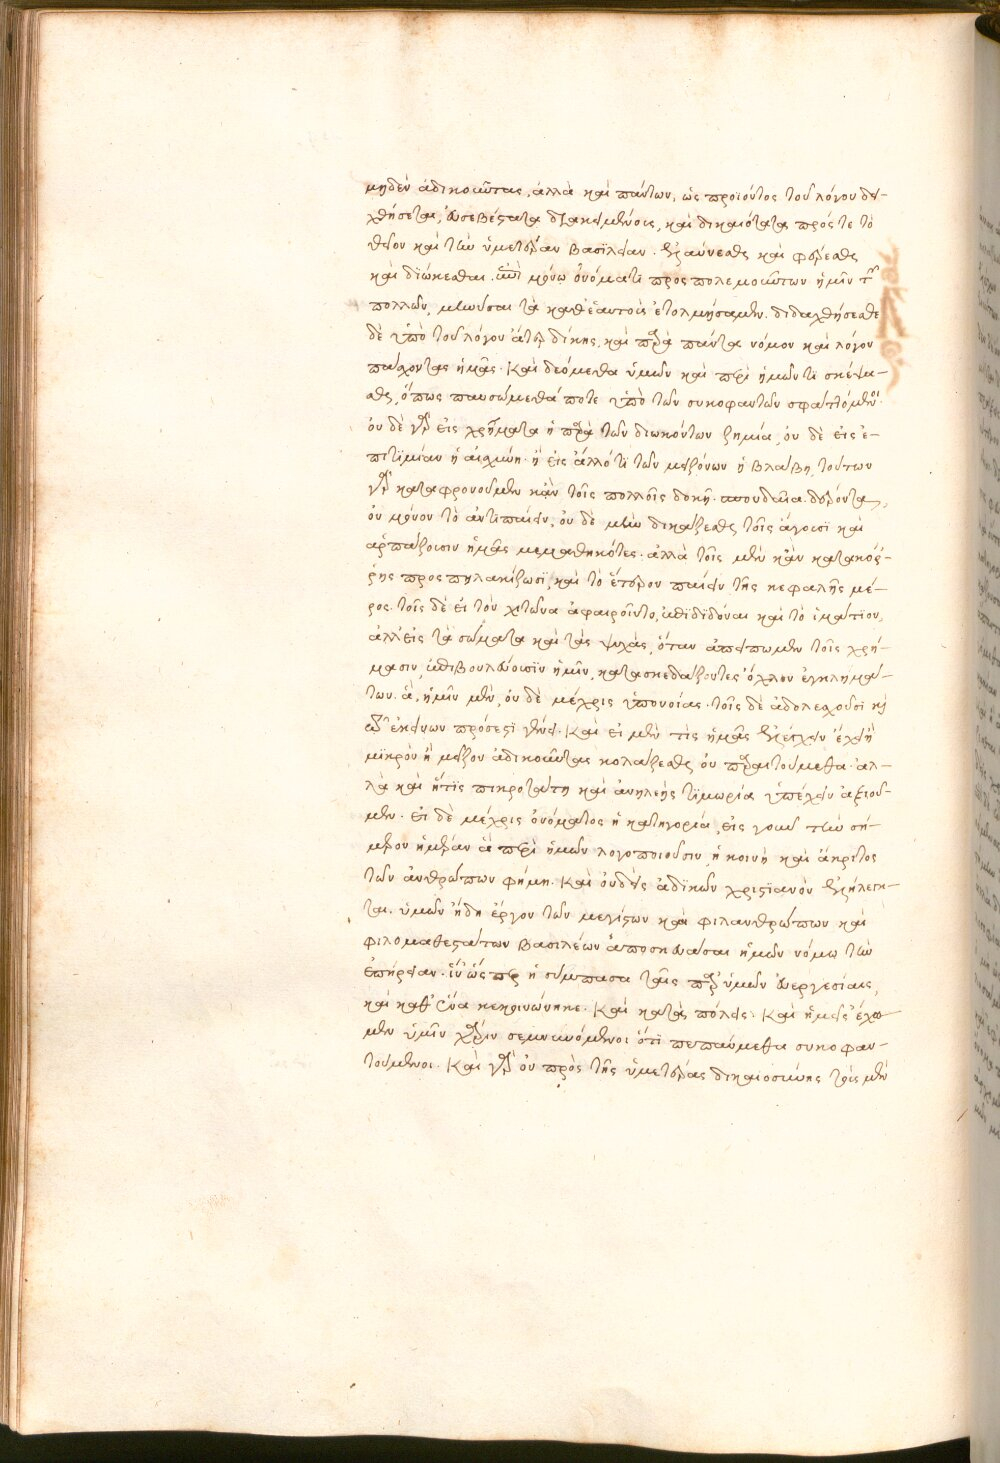 μηδὲν ἀδικοῦντας, ἀλλὰ καὶ πάντων, ὡς προϊόντος τοῦ λόγου δει-
χθήσεται, εὐσεβέστατα διακειμένους, καὶ δικαιότατα πρός τε τὸ
θεῖον καὶ τὴν ὑμετέραν βασιλείαν. ἐλαύνεσθαι καὶ φέρεσθαι
καὶ διώκεσθαι. ἐπὶ μόνῳ ὀνόματι προσπολεμούντων ἡμῖν τῶν
πολλῶν, μηνῦσαι τὰ καθ' ἑαυτοὺς ἐτολμήσαμεν. διδαχθήσεσθε
δὲ ὑπὸ τοῦ λόγου ἄτερ δίκης, καὶ παρὰ πάντα νόμον καὶ λόγον
πάσχοντας ἡμᾶς. Καὶ δεόμεθα ὑμῶν καὶ περὶ ἡμῶν τι σκέψα-
σθαι, ὅπως παυσώμεθά ποτε ὑπὸ τῶν συκοφαντῶν σφαττόμενοι.
οὐ δὲ γὰρ εἰς χρήματα ἡ παρὰ τῶν διωκόντων ζημία, οὐ δὲ εἰς ἐ-
πιτιμίαν ἡ αἰσχύνη. ἢ εἰς ἄλλό τι τῶν μειζόνων ἡ βλάβη, τούτων
γὰρ καταφρονοῦμεν κἂν τοῖς πολλοῖς δοκῇ σπουδαῖα. δέροντα,
οὐ μόνον τὸ ἀντιπαίειν, οὐ δὲ μὴν δικάζεσθαι τοῖς ἄγουσι καὶ
ἁρπάζουσιν ἡμᾶς μεμαθηκότες. ἀλλὰ τοῖς μὲν κἂν κατακόρ-
ρης προσπηλακίζωσι, καὶ τὸ ἕτερον παίειν τῆς κεφαλῆς μέ-
ρος. τοῖς δὲ εἰ τὸν χιτῶνα ἀφαιροῖντο, ἐπιδιδόναι καὶ τὸ ἱμάτιον,
ἀλλ' εἰς τὰ σώματα καὶ τὰς ψυχὰς, ὅταν ἀπείπωμεν τοῖς χρή-
μασιν, ἐπιβουλεύουσιν ἡμῖν, κατασκεδάζοντες ὄχλον ἐγκλημά-
των. ἃ, ἡμῖν μὲν, οὐ δὲ μέχρις ὑπονοίας. τοῖς δὲ ἀδολεσχοῦσι καὶ
τῷ ἐκείνων πρόσεστι γένει. Καὶ εἰ μέν τις ἡμᾶς ἐλέγχειν ἔχει ἢ
μικρὸν ἢ μεῖζον ἀδικοῦντας κολάζεσθαι οὐ παραιτούμεθα. ἀλ-
λὰ καὶ ἥτις πικροτάτη καὶ ἀνηλεὴς τιμωρία ὑπέχειν ἀξιοῦ-
μεν. εἰ δὲ μέχρις ὀνόματος ἡ κατηγορία, εἰς γοῦν τὴν σή-
μερον ἡμέραν ἃ περὶ ἡμῶν λογοποιοῦσιν ἡ κοινὴ καὶ ἄκριτος
τῶν ἀνθρώπων φήμη. Καὶ οὐδεὶς ἀδικῶν χριστιανὸν ἐλήλεγκ-
ται. ὑμῶν ἤδη ἔργον τῶν μεγίστων καὶ φιλανθρώπων καὶ
φιλομαθεστάτων βασιλέων ἀποσκευάσαι ἡμῶν νόμῳ τὴν
ἐπήρειαν. ἵν' ὥσπερ ἡ σύμπασα ταῖς παρ' ὑμῶν εὐεργεσίαις,
καὶ καθ' ἕνα κεκοινώνηκε. Καὶ κατὰ πόλεις. Καὶ ἡμεῖς ἔχω-
μεν ὑμῖν χάριν σεμνυνόμενοι ὅτι πεπαύμεθα συκοφαν-
τούμενοι. Καὶ γὰρ οὐ πρὸς τῆς ὑμετέρας δικαιοσύνης τοὺς μὲν